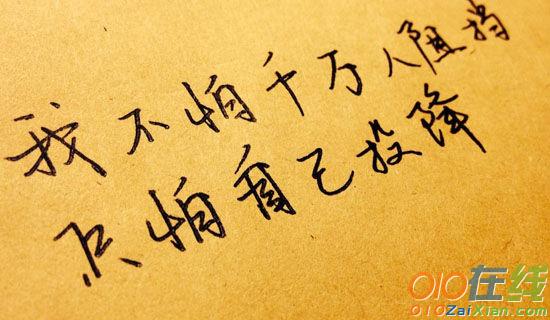 我不怕千万人阻挡
只怕自己投降
010在线
010ZaiXian.com